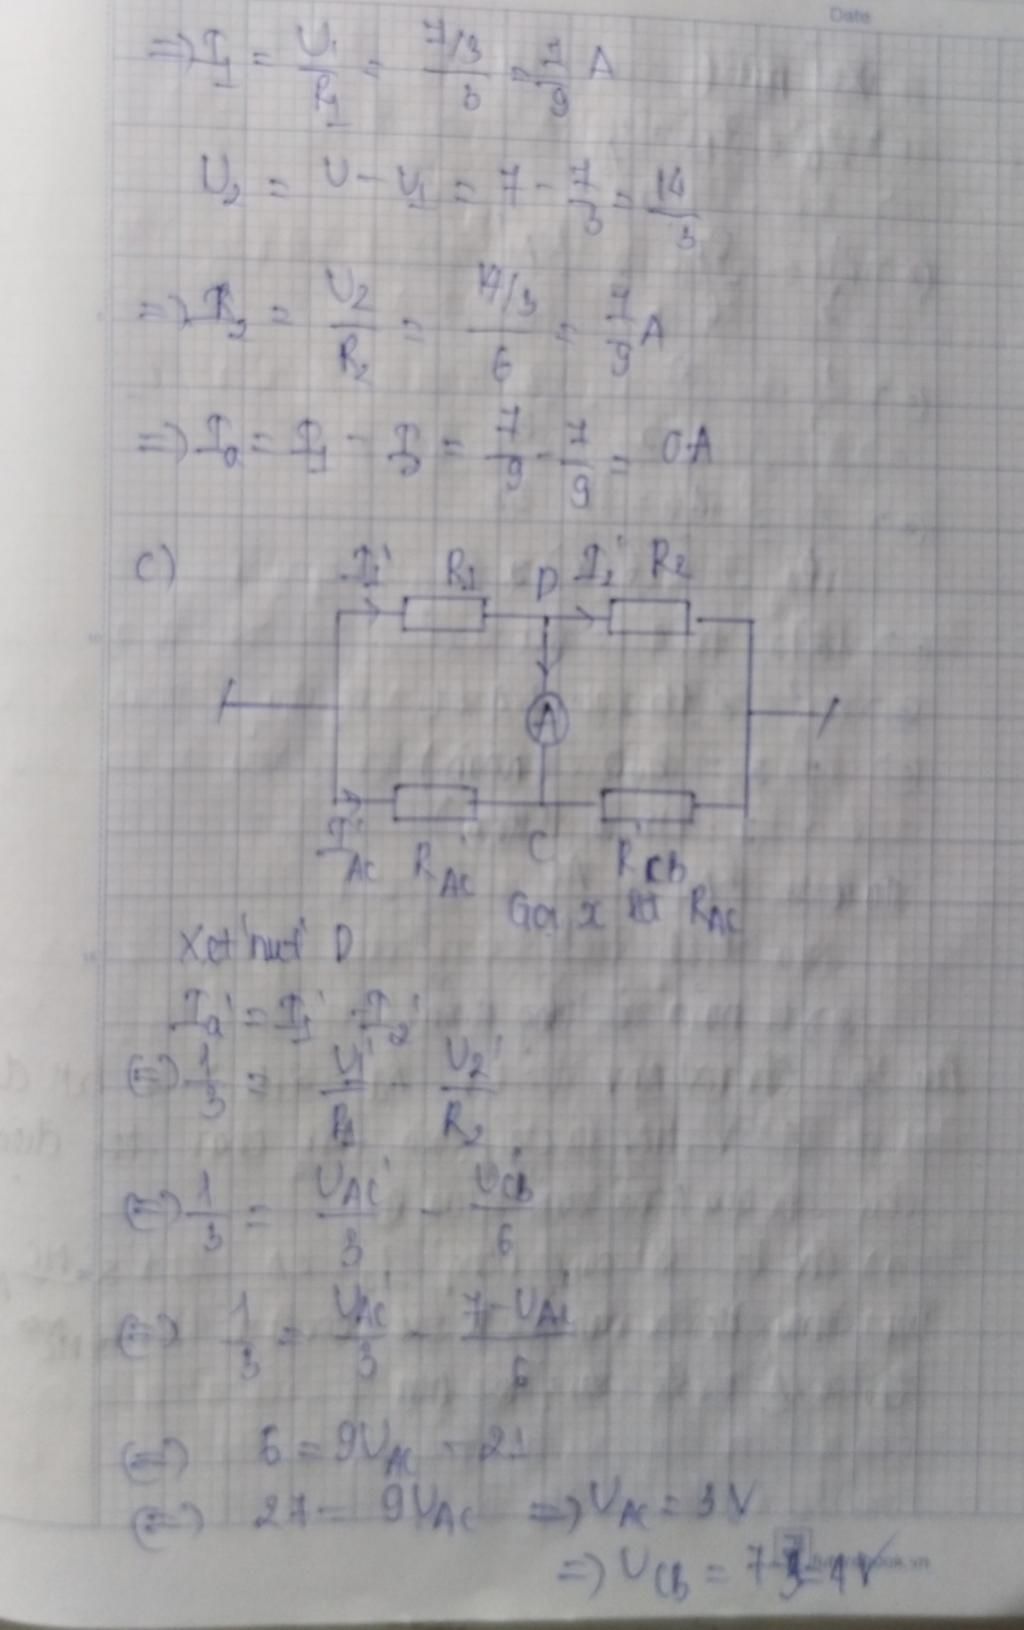 Date
=> I₁ = U₁/R₁ = 7/3/3 = 7/9 A
U₂ = U - U₁ = 7 - 7/3 = 14/3
=> I₂ = U₂/R₂ = 14/3/6 = 7/9 A
=> Ia = I₁ - I₂ = 7/9 - 7/9 = 0A
c)
I₁' R₁ D I₂' R₂
A
I'AC R'AC C R'CB
Gọi x là RAC
Xét nút D
Ia' = I₁' - I₂'
(=) 1/3 = U₁'/R₁ - U₂'/R₂
(=) 1/3 = UAC'/3 - UCB'/6
(=) 1/3 = UAC'/3 - 7-UAC'/6
(=) 6 = 9UAC - 21
(=) 27 = 9UAC => UAC = 3V
=> UCB = 7-3=4V